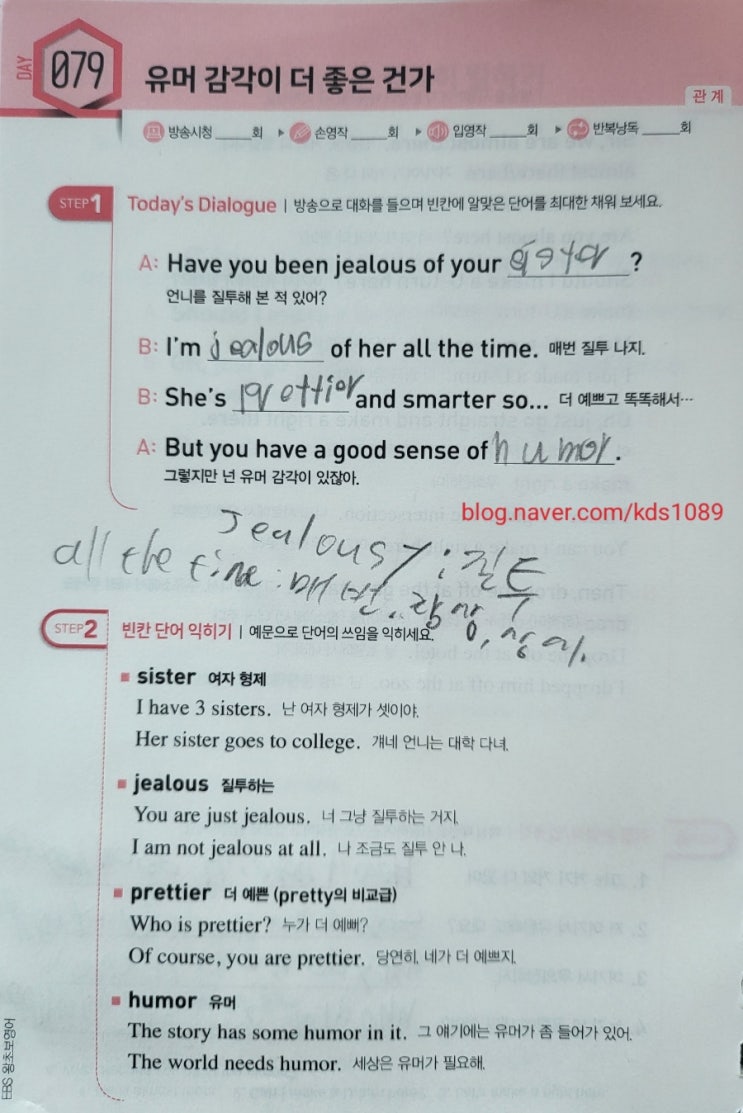 DAY 079 유머 감각이 더 좋은 건가
관계
방송시청 ____회 ▶ 손영작 ____회 ▶ 입영작 ____회 ▶ 반복낭독 ____회
STEP 1 Today's Dialogue | 방송으로 대화를 들으며 빈칸에 알맞은 단어를 최대한 채워 보세요.
A: Have you been jealous of your sister?
언니를 질투해 본 적 있어?
B: I'm jealous of her all the time. 매번 질투 나지.
B: She's prettier and smarter so... 더 예쁘고 똑똑해서…
A: But you have a good sense of humor.
그렇지만 넌 유머 감각이 있잖아.
blog.naver.com/kds1089
Jealousy: 질투
all the time: 매번, 항상,
STEP 2 빈칸 단어 익히기 | 예문으로 단어의 쓰임을 익히세요.
■ sister 여자 형제
I have 3 sisters. 난 여자 형제가 셋이야.
Her sister goes to college. 걔네 언니는 대학 다녀.
■ jealous 질투하는
You are just jealous. 너 그냥 질투하는 거지.
I am not jealous at all. 나 조금도 질투 안 나.
■ prettier 더 예쁜 (pretty의 비교급)
Who is prettier? 누가 더 예뻐?
Of course, you are prettier. 당연히, 네가 더 예쁘지.
■ humor 유머
The story has some humor in it. 그 얘기에는 유머가 좀 들어가 있어.
The world needs humor. 세상은 유머가 필요해.
EBS 왕초보영어